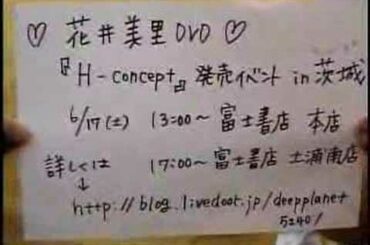 ♡ 花井美里DVD ♡
『H-concept』発売イベント in 茨城
6/17(土) 13:00〜 富士書店 本店
詳しくは 17:00〜富士書店 土浦南店
↓
http://blog.livedoor.jp/deepplanet
5240/